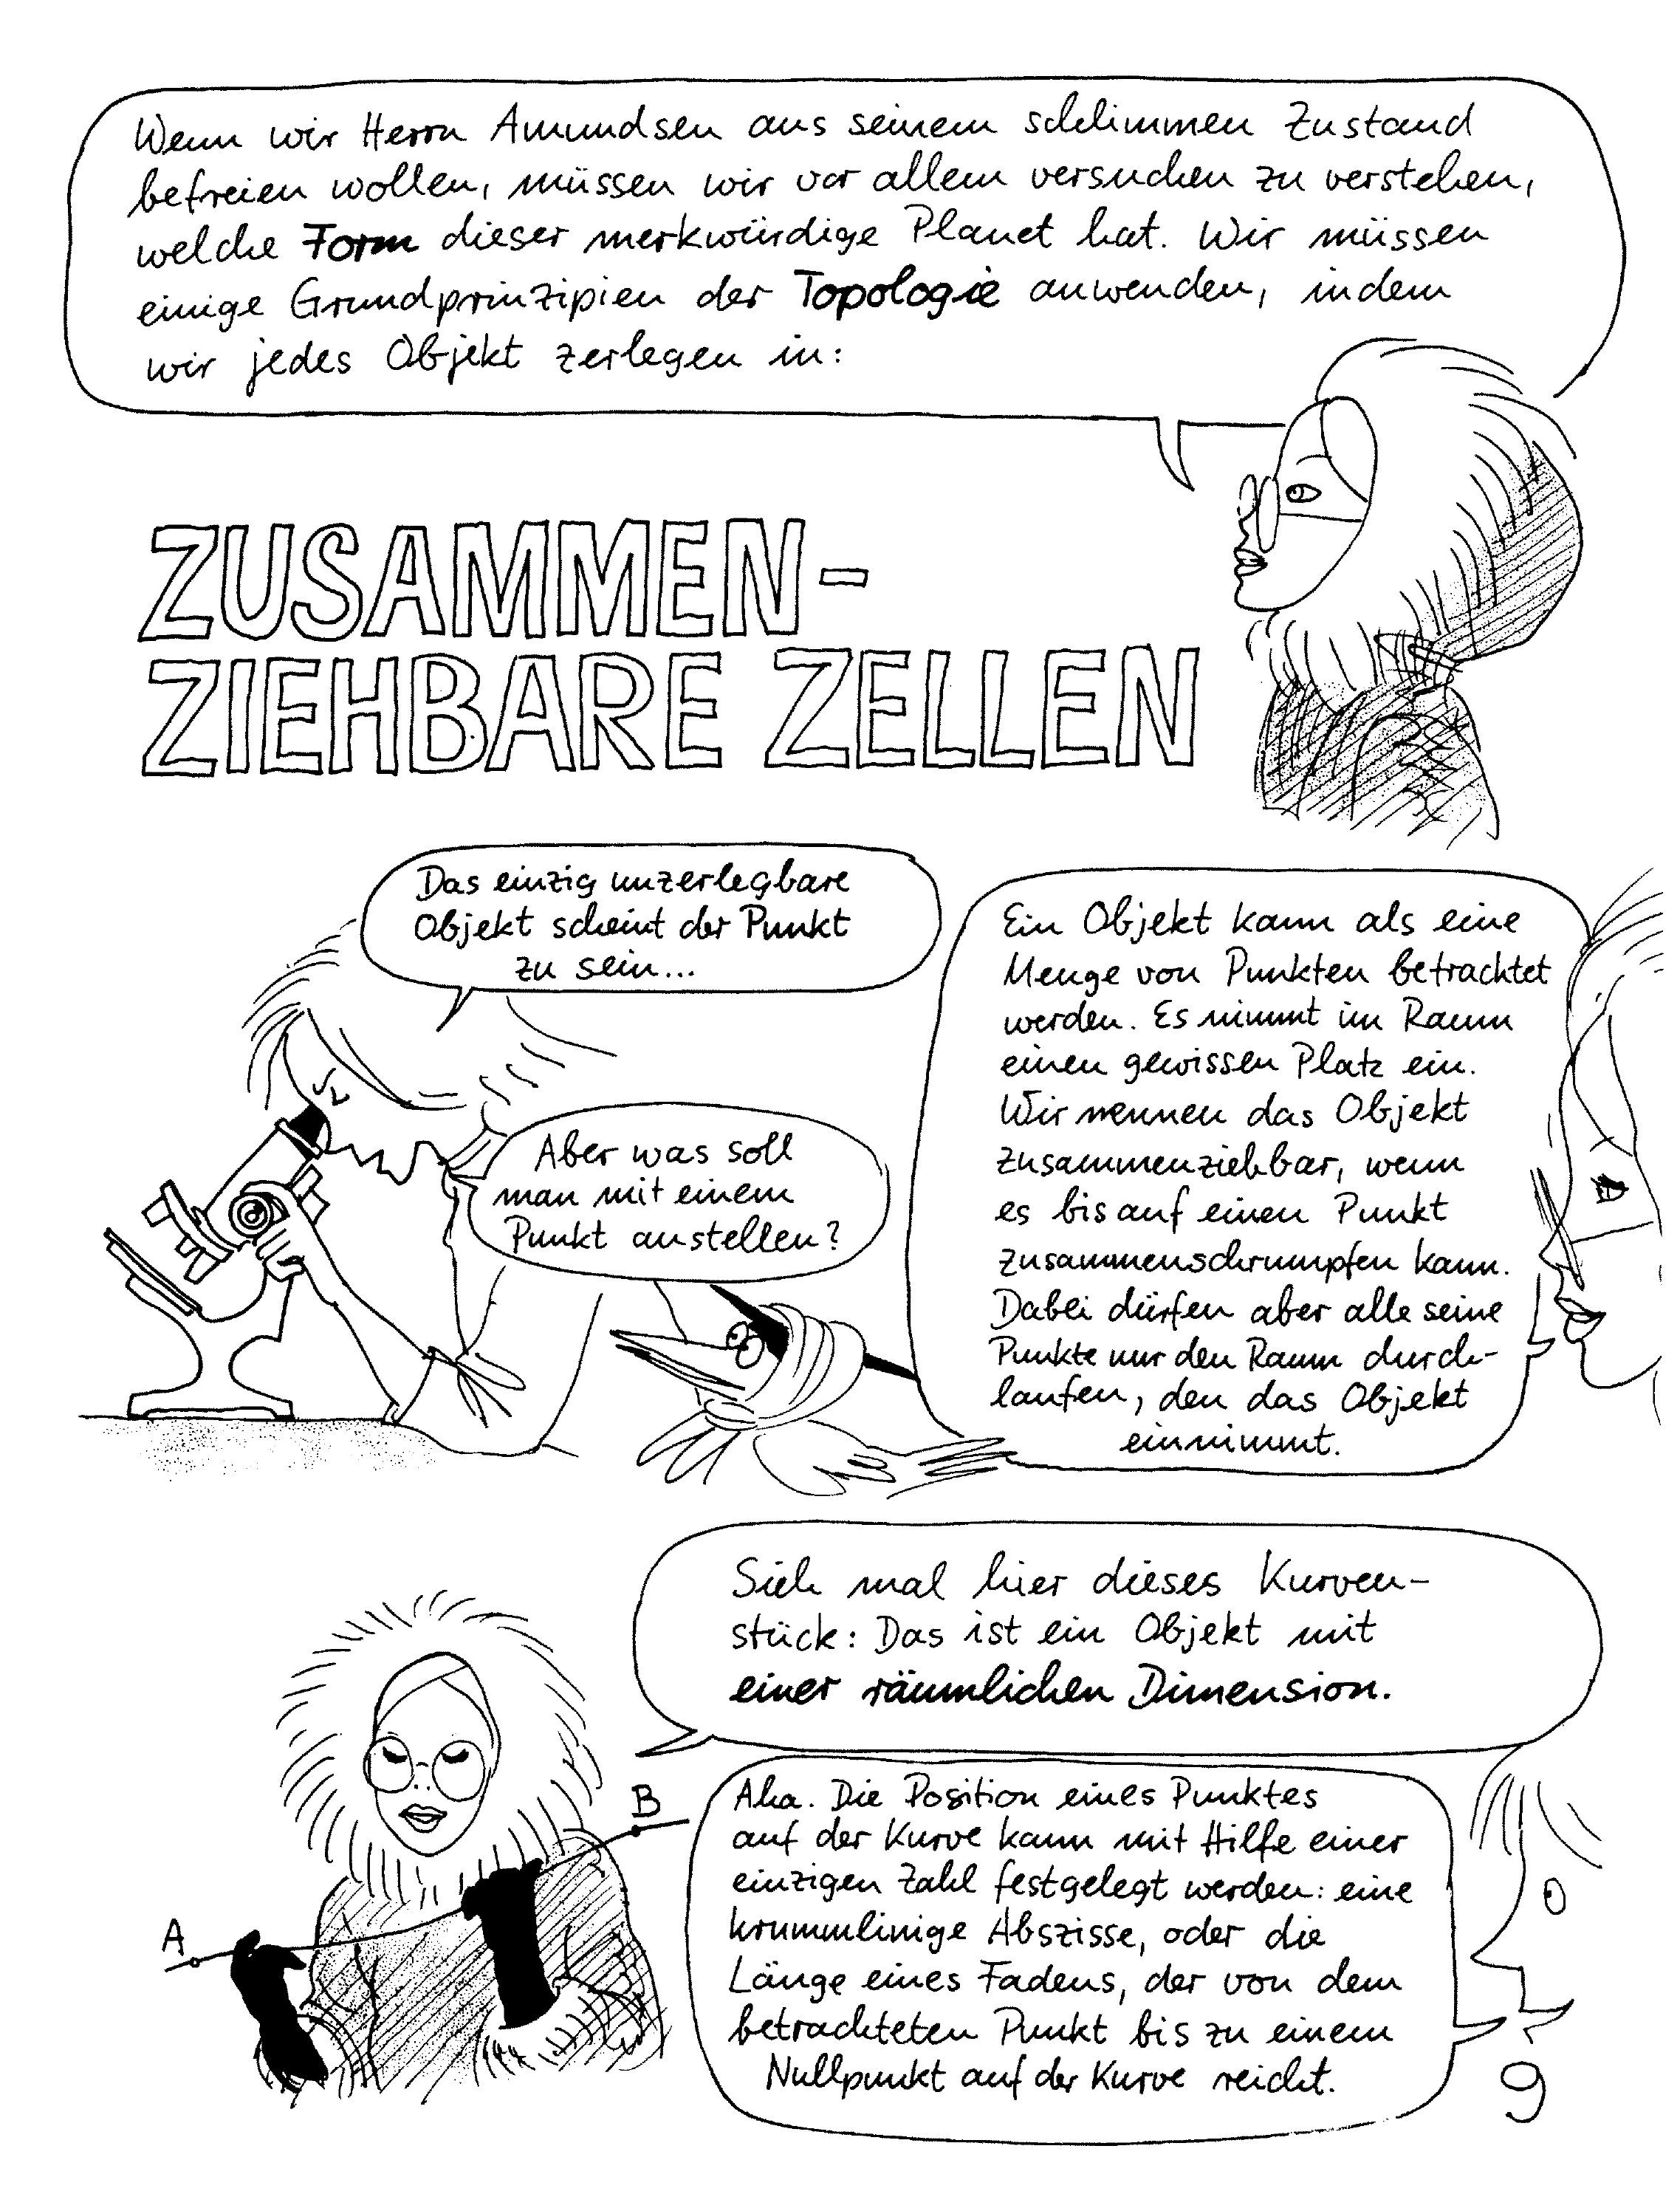 Wenn wir Herrn Amundsen aus seinem schlimmen Zustand
befreien wollen, müssen wir vor allem versuchen zu verstehen,
welche Form dieser merkwürdige Planet hat. Wir müssen
einige Grundprinzipien der Topologie anwenden, indem
wir jedes Objekt zerlegen in:
ZUSAMMEN-
ZIEHBARE ZELLEN
Das einzig unzerlegbare
Objekt scheint der Punkt
zu sein...
Aber was soll
man mit einem
Punkt anstellen?
Ein Objekt kann als eine
Menge von Punkten betrachtet
werden. Es nimmt im Raum
einen gewissen Platz ein.
Wir nennen das Objekt
zusammenziehbar, wenn
es bis auf einen Punkt
zusammenschrumpfen kann.
Dabei dürfen aber alle seine
Punkte nur den Raum durch-
laufen, den das Objekt
einnimmt.
Sieh mal hier dieses Kurven-
stück: Das ist ein Objekt mit
einer räumlichen Dimension.
A
B
Aha. Die Position eines Punktes
auf der Kurve kann mit Hilfe einer
einzigen Zahl festgelegt werden: eine
krummlinige Abszisse, oder die
Länge eines Fadens, der von dem
betrachteten Punkt bis zu einem
Nullpunkt auf der Kurve reicht.
9